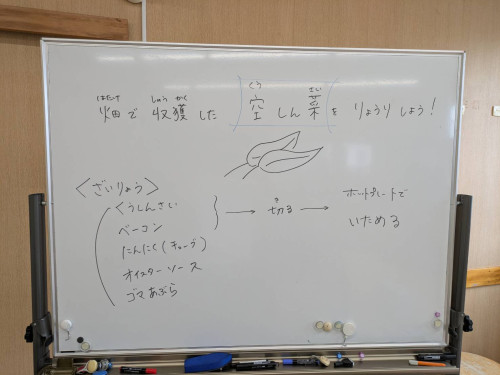 はたけ しゅう かく くう さい
畑で 収獲した 空しん菜を りょうりしよう!
<ざいりょう>
くうしんさい
ベーコン
にんにく(チューブ)
オイスターソース
ゴマあぶら
き
切る
ホットプレートで
いためる